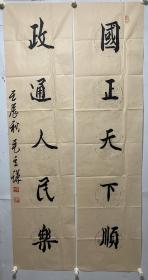 國正天下順
政通人民樂
壬辰秋